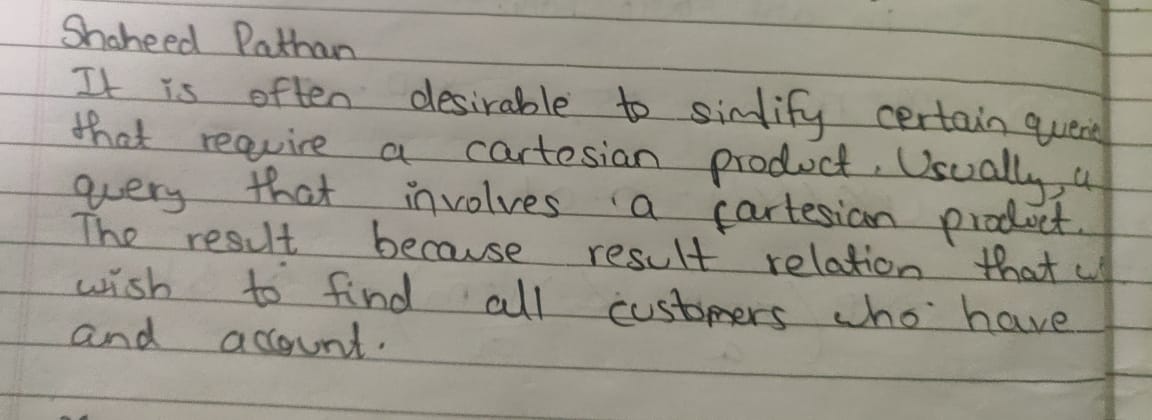 Shaheed Pathan
It is often desirable to simlify certain querie
that require a cartesian product. Usually, a
query that involves a cartesian product.
The result because result relation that w
wish to find all customers who have
and account.